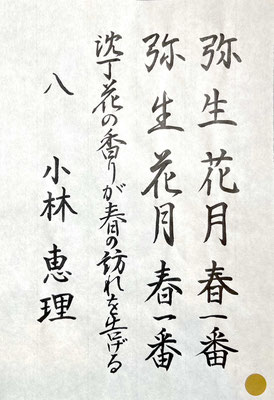 弥生花月春一番
弥生花月春一番
沈丁花の香りが春の訪れを告げる
八 小林恵理